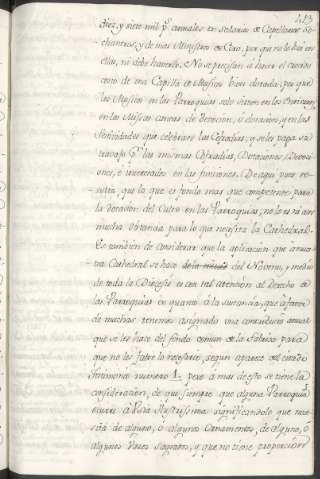 413
diez, y siete mil p.s annuales en salarios de Capellanes So-
chantres, y demas Ministros de Coro, por que no lo hai en
ellas, ni debe haverlo. No se precisan á hacer el
costo de una Capilla de Musica bien dotada; por que
los Musicos en las Parroquias solo sirven en los
en las Missas cantadas de devocion, ó dotacion, y en las
festividades que celebran las Cofradias, y se les paga su
trabajo p.r las mismas Cofradias, Dotaciones, Devocio-
nes, é interesados en las funciones. De aqui pues re-
sulta, que lo que es fondo mas que competente para
la dotacion del Culto en las Parroquias, no lo es ni con
mucha distancia para lo que necesita la Cathedral.
Es tambien de considerar que la aplicacion que
à la Cathedral se hace del Noveno, y medio
de toda la Diocesis es con tal atencion al derecho de
las Parroquias en quanto á la
de muchas tenemos asignado una contribucion anual
que se les hace del fondo comun de la Fabrica para
que no les falte lo necesario, segun aparece del citado
testimonio numero 1. pero á mas de esto se tiene la
consideracion, de que siempre que alguna Parroquia
ocurre á V.ra Illustrissima significandole que nece-
sita de alguno, ó algunos Ornamentos, de alguno, ó
algunos Vasos Sagrados, y que no tiene proporcion